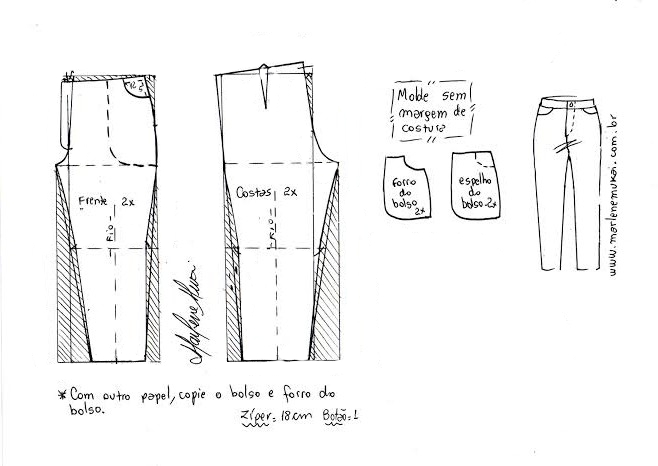 Frente 2x
Rio
Costas 2x
Rio
Molde sem
margem de
costura
forro
do
bolso
2x
espelho
do
bolso-2x
www.marlenemukai.com.br
* Com outro papel, copie o bolso e forro do
bolso.
Zíper= 18cm Botão=1